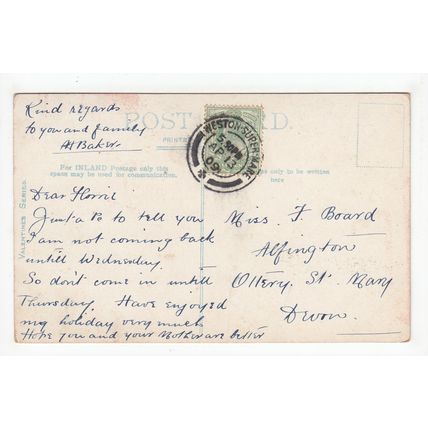 Kind regards
to you and family
A Baker
POST CARD.
PRINTE
For INLAND Postage only this
space may be used for communication.
only to be written
here
VALENTINES SERIES
WESTON-SUPER-MARE
AP 13
09
Dear Florrie
Just a Pc to tell you
I am not coming back
until Wednesday.
So don't come in untill
Thursday. Have enjoyed
my holiday very much
Hope you and your Mother are better
Miss F Board
Alfington
Ottery St. Mary
Devon.